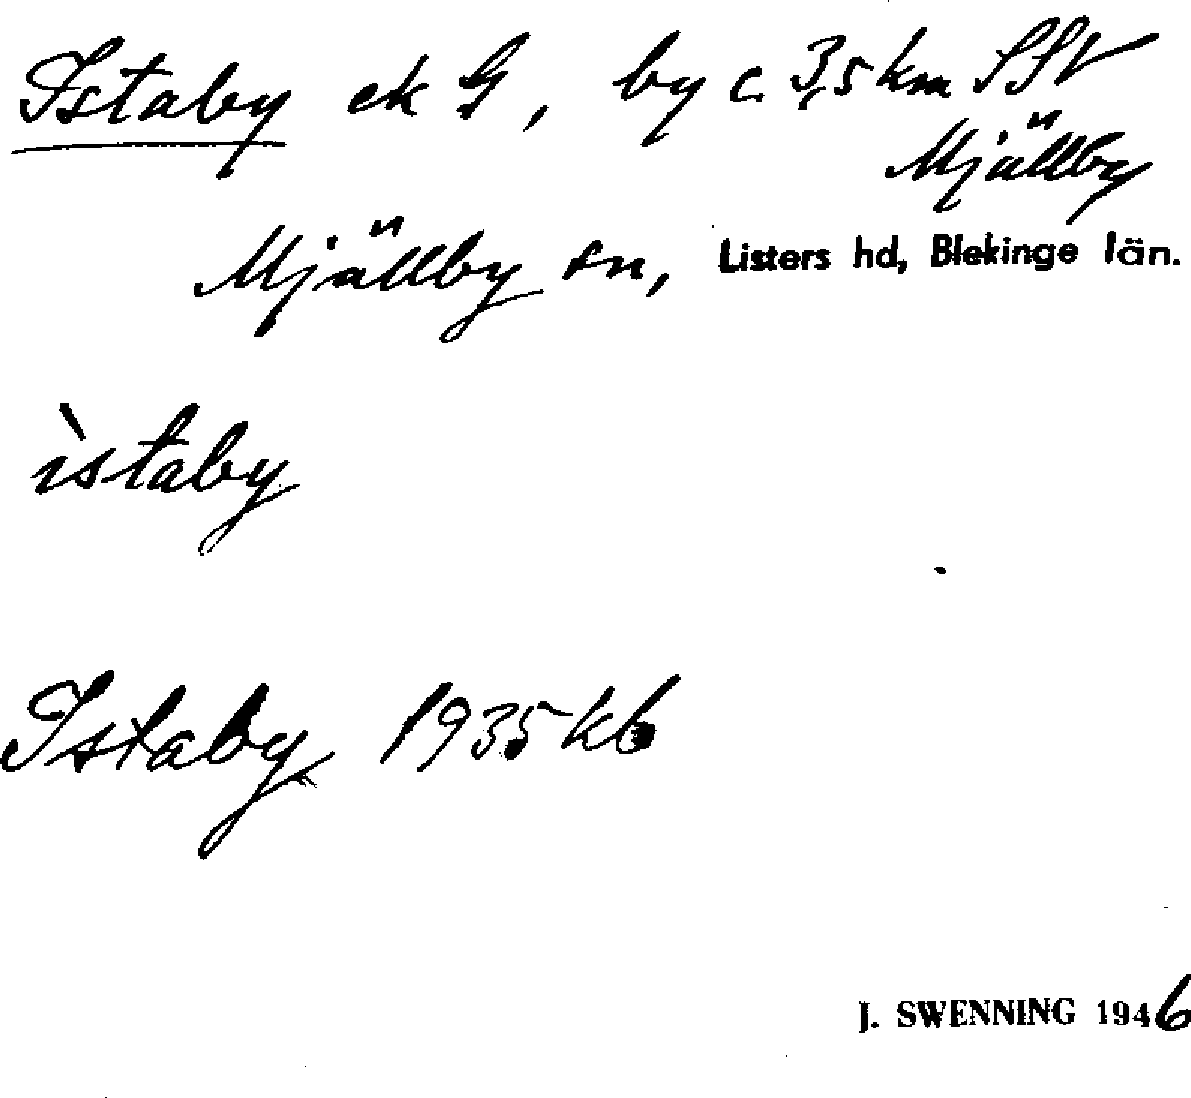 Istaby ek G, by c. 3,5 km SSV
Mjällby
Mjällby sn, Listers hd, Blekinge län.
ìstaby
Istaby 1935 kb
J. SWENNING 1946